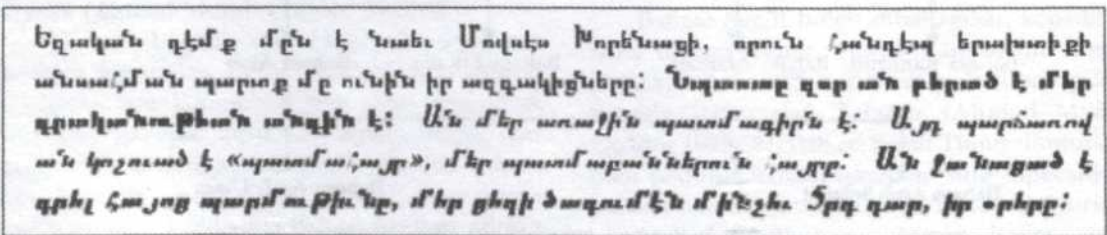 Եզական դէմք մըն է նաեւ Մովսէս Խորենացի, որուն հանդէպ երախտիքի
անսահման պարտք մը ունին իր ազգակիցները: Նպաստը զոր ան բերած է մեր
գրականութեան անգին է: Ան մեր առաջին պատմագիրն է: Այդ պարճառով
ան կոչուած է «պատմահայր», մեր պատմաբաններուն հայրը: Ան ջանացած է
գրել հայոց պարմութիւնը, մեր ցեղի ծագումէն մինչեւ 5րդ դար, իր օրերը: